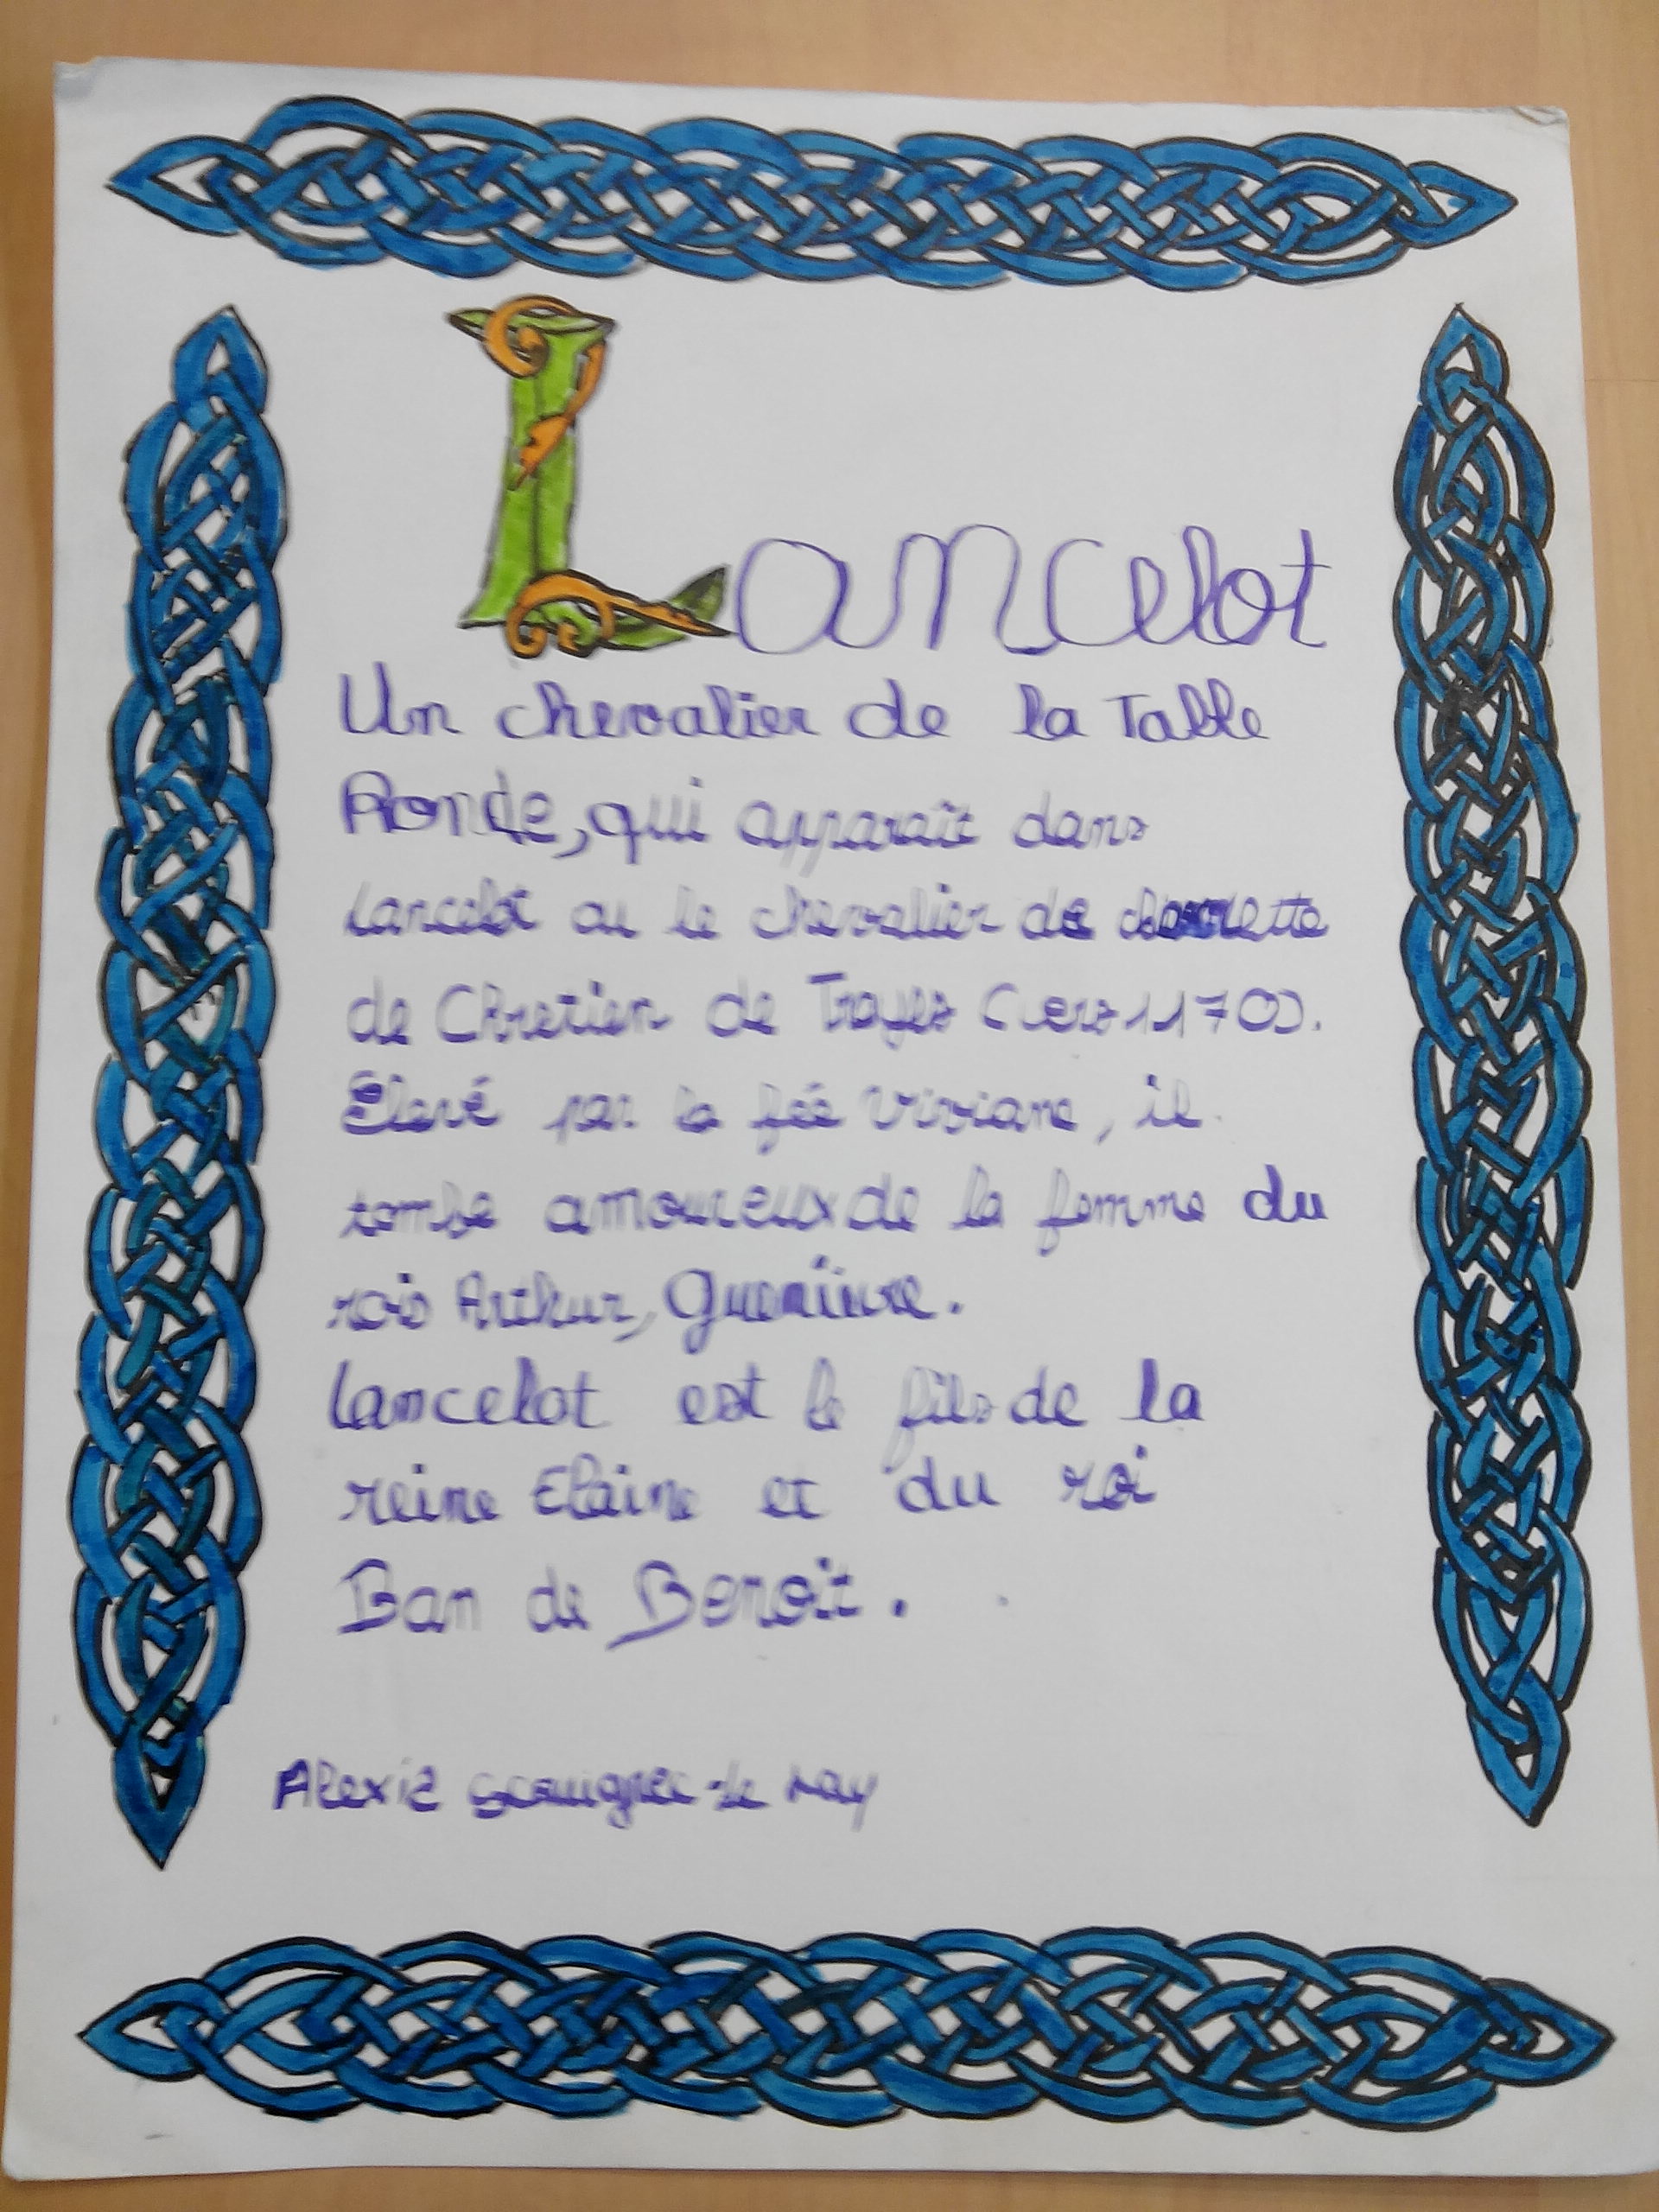 Lancelot
Un chevalier de la Table
Ronde, qui apparaît dans
Lancelot ou le chevalier de charrette
de Chretien de Troyes (vers 1170).
Élevé par la fée Viviane, il
tombe amoureux de la femme du
rois Arthur, Guenièvre.
Lancelot est le fils de la
reine Elaine et du roi
Ban de Benoït.
Alexis